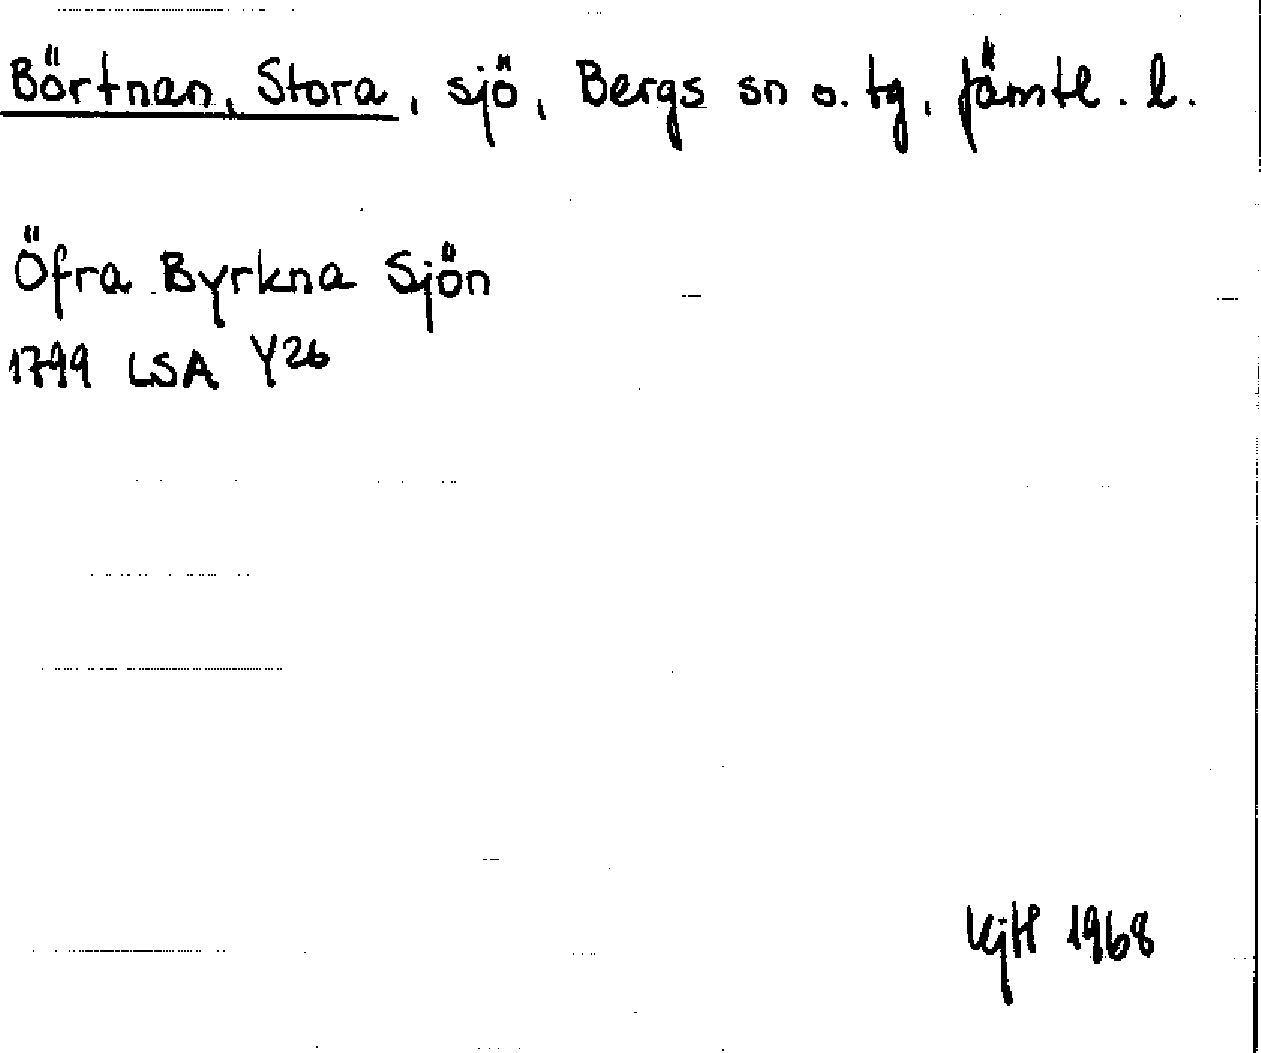 Börtnan, Stora, sjö, Bergs sn o. tg, Jämtl. l.
Öfra Byrkna Sjön
1799 LSA Y26
KjH 1968